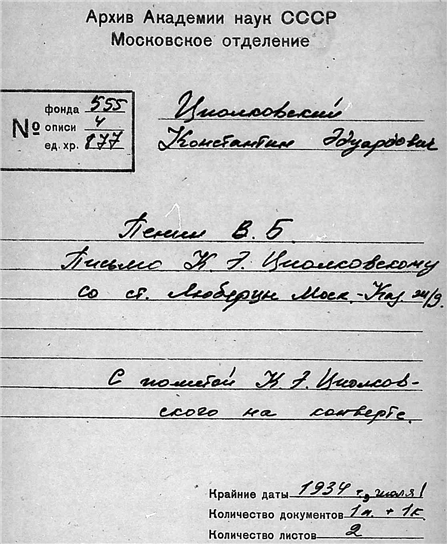 Архив Академии наук СССР
Московское отделение
№
фонда 555
описи 4
ед. хр. 877
Циолковский
Константин Эдуардович
Пенин В. Б.
Письмо К. Э. Циолковскому
со ст. Люберцы Моск.-Каз. ж/д.
С пометой К. Э. Циолков-
ского на конверте.
Крайние даты 1934 г, июля 1
Количество документов 1 п. + 1 к.
Количество листов 2